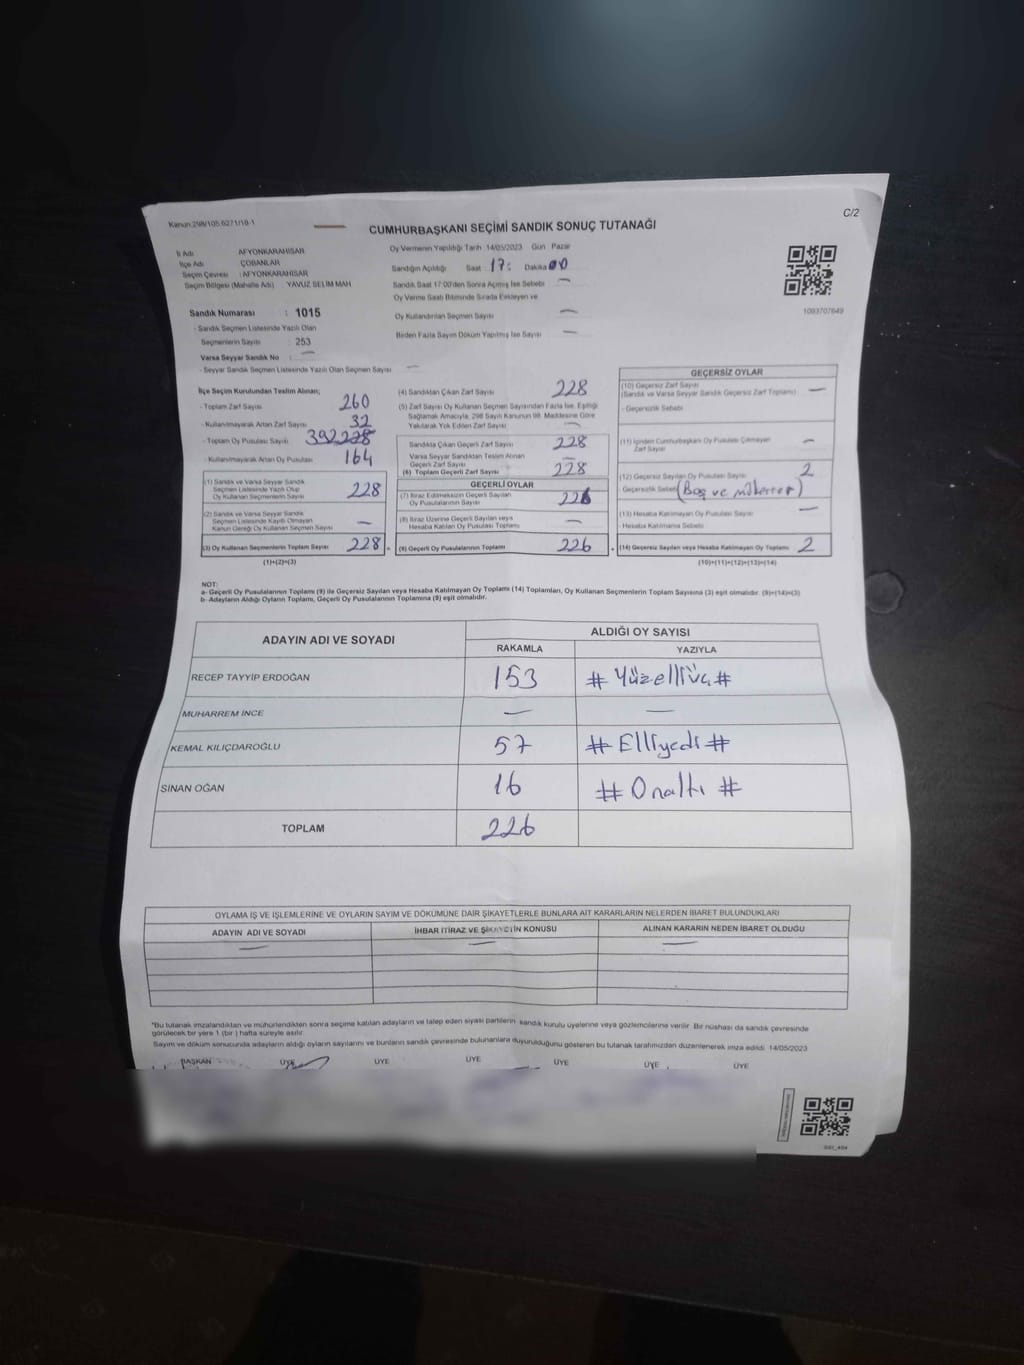 Kanun:298/105,6271/19-1
C/2
CUMHURBAŞKANI SEÇİMİ SANDIK SONUÇ TUTANAĞI
İl Adı AFYONKARAHİSAR
İlçe Adı ÇOBANLAR
Seçim Çevresi : AFYONKARAHİSAR
Seçim Bölgesi (Mahalle Adı) : YAVUZ SELİM MAH
Oy Vermenin Yapıldığı Tarih 14/05/2023 Gün Pazar
Sandığın Açıldığı Saat 17: Dakika 00
Sandık Saat 17:00'den Sonra Açılmış İse Sebebi —
Oy Verme Saati Bitiminde Sırada Bekleyen ve
Oy Kullandırılan Seçmen Sayısı —
Birden Fazla Sayım Döküm Yapılmış İse Sayısı —
1093707649
Sandık Numarası : 1015
- Sandık Seçmen Listesinde Yazılı Olan
Seçmenlerin Sayısı : 253
Varsa Seyyar Sandık No : —
- Seyyar Sandık Seçmen Listesinde Yazılı Olan Seçmen Sayısı —
İlçe Seçim Kurulundan Teslim Alınan;
- Toplam Zarf Sayısı 260
- Kullanılmayarak Artan Zarf Sayısı 32
- Toplam Oy Pusulası Sayısı 392 228
- Kullanılmayarak Artan Oy Pusulası 164
(1) Sandık ve Varsa Seyyar Sandık
Seçmen Listesinde Yazılı Olup
Oy Kullanan Seçmenlerin Sayısı 228
(2) Sandık ve Varsa Seyyar Sandık
Seçmen Listesinde Kayıtlı Olmayan
Kanun Gereği Oy Kullanan Seçmen Sayısı —
(3) Oy Kullanan Seçmenlerin Toplam Sayısı 228 =
(1)+(2)=(3)
(4) Sandıktan Çıkan Zarf Sayısı 228
(5) Zarf Sayısı Oy Kullanan Seçmen Sayısından Fazla İse, Eşitliği
Sağlamak Amacıyla, 298 Sayılı Kanunun 98. Maddesine Göre
Yakılarak Yok Edilen Zarf Sayısı —
Sandıkta Çıkan Geçerli Zarf Sayısı 228
Varsa Seyyar Sandıktan Teslim Alınan
Geçerli Zarf Sayısı —
(6) Toplam Geçerli Zarf Sayısı 228
GEÇERLİ OYLAR
(7) İtiraz Edilmeksizin Geçerli Sayılan
Oy Pusulalarının Sayısı 226
(8) İtiraz Üzerine Geçerli Sayılan veya
Hesaba Katılan Oy Pusulası Toplamı —
(9) Geçerli Oy Pusulalarının Toplamı 226 +
GEÇERSİZ OYLAR
(10) Geçersiz Zarf Sayısı
(Sandık ve Varsa Seyyar Sandık Geçersiz Zarf Toplamı) —
- Geçersizlik Sebebi
(11) İçinden Cumhurbaşkanı Oy Pusulası Çıkmayan
Zarf Sayısı —
(12) Geçersiz Sayılan Oy Pusulası Sayısı 2
Geçersizlik Sebebi (Boş ve mükerrer)
(13) Hesaba Katılmayan Oy Pusulası Sayısı —
- Hesaba Katılmama Sebebi
(14) Geçersiz Sayılan veya Hesaba Katılmayan Oy Toplamı 2
(10)+(11)+(12)+(13)=(14)
NOT:
a- Geçerli Oy Pusulalarının Toplamı (9) ile Geçersiz Sayılan veya Hesaba Katılmayan Oy Toplamı (14) Toplamları, Oy Kullanan Seçmenlerin Toplam Sayısına (3) eşit olmalıdır. (9)+(14)=(3)
b- Adayların Aldığı Oyların Toplamı, Geçerli Oy Pusulalarının Toplamına (9) eşit olmalıdır.
ADAYIN ADI VE SOYADI
ALDIĞI OY SAYISI
RAKAMLA YAZIYLA
RECEP TAYYİP ERDOĞAN 153 # Yüzelliüç #
MUHARREM İNCE — —
KEMAL KILIÇDAROĞLU 57 # Elliyedi #
SİNAN OĞAN 16 # Onaltı #
TOPLAM 226
OYLAMA İŞ VE İŞLEMLERİNE VE OYLARIN SAYIM VE DÖKÜMÜNE DAİR ŞİKAYETLERLE BUNLARA AİT KARARLARIN NELERDEN İBARET BULUNDUKLARI
ADAYIN ADI VE SOYADI İHBAR İTİRAZ VE ŞİKAYETİN KONUSU ALINAN KARARIN NEDEN İBARET OLDUĞU
— — —
*Bu tutanak imzalandıktan ve mühürlendikten sonra seçime katılan adayların ve talep eden siyasi partilerin sandık kurulu üyelerine veya gözlemcilerine verilir. Bir nüshası da sandık çevresinde
görülecek bir yere 1 (bir) hafta süreyle asılır.
Sayım ve döküm sonucunda adayların aldığı oyların sayılarını ve bunların sandık çevresinde bulunanlara duyurulduğunu gösteren bu tutanak tarafımızdan düzenlenerek imza edildi. 14/05/2023
BAŞKAN ÜYE ÜYE ÜYE ÜYE ÜYE ÜYE